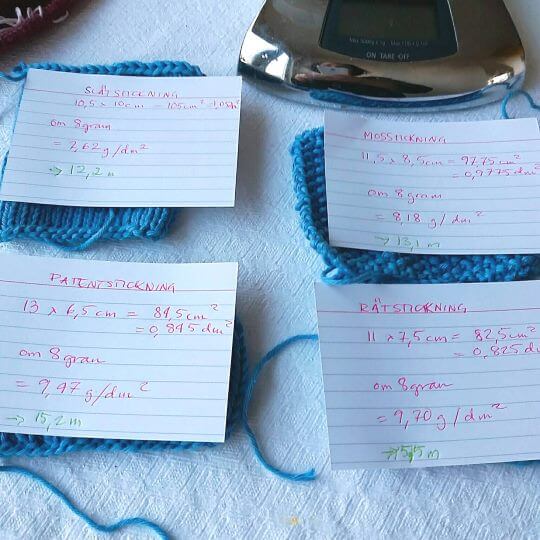 ON TAKE OFF
SLÄTSTICKNING
10,5 x 10cm = 105cm² = 1,05dm²
om 8gram
= 7,62g/dm²
→ 12,2m
MOSSTICKNING
11,5 x 8,5cm = 97,75cm²
= 0,9775dm²
om 8gram
= 8,18 g/dm²
→ 13,1 m
PATENTSTICKNING
13 x 6,5cm = 84,5cm²
= 0,845dm²
om 8gram
= 9,47 g/dm²
→ 15,2 m
RÄTSTICKNING
11 x 7,5cm = 82,5cm²
= 0,825dm²
om 8gram
= 9,70 g/dm²
→ 15,5 m